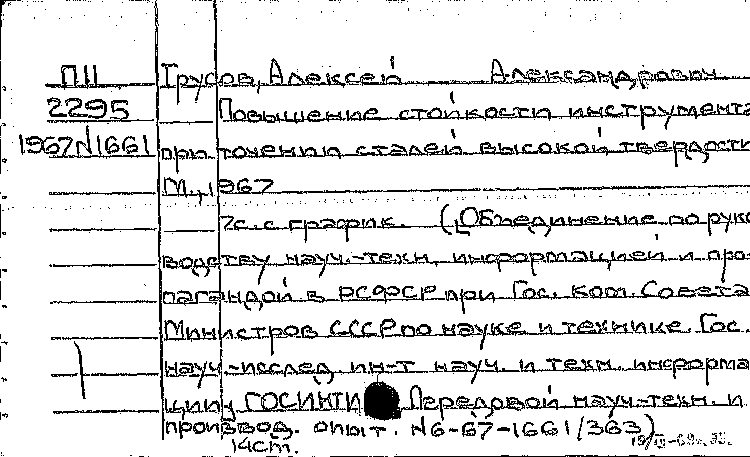 П11 Трусов, Алексей Александрович
2295 Повышение стойкости инструмента
1967N1661 при точении сталей высокой твердости
М., 1967
7с. с график. (Объединение по руко-
водству науч.-техн. информацией и про-
пагандой в РСФСР при Гос. ком. Совета
Министров СССР по науке и технике. Гос.
науч.-исслед. ин-т науч. и техн. информа-
ции, ГОСИНТИ Передовой науч.-техн. и
производ. опыт. N6-67-1661/363)
14cm.